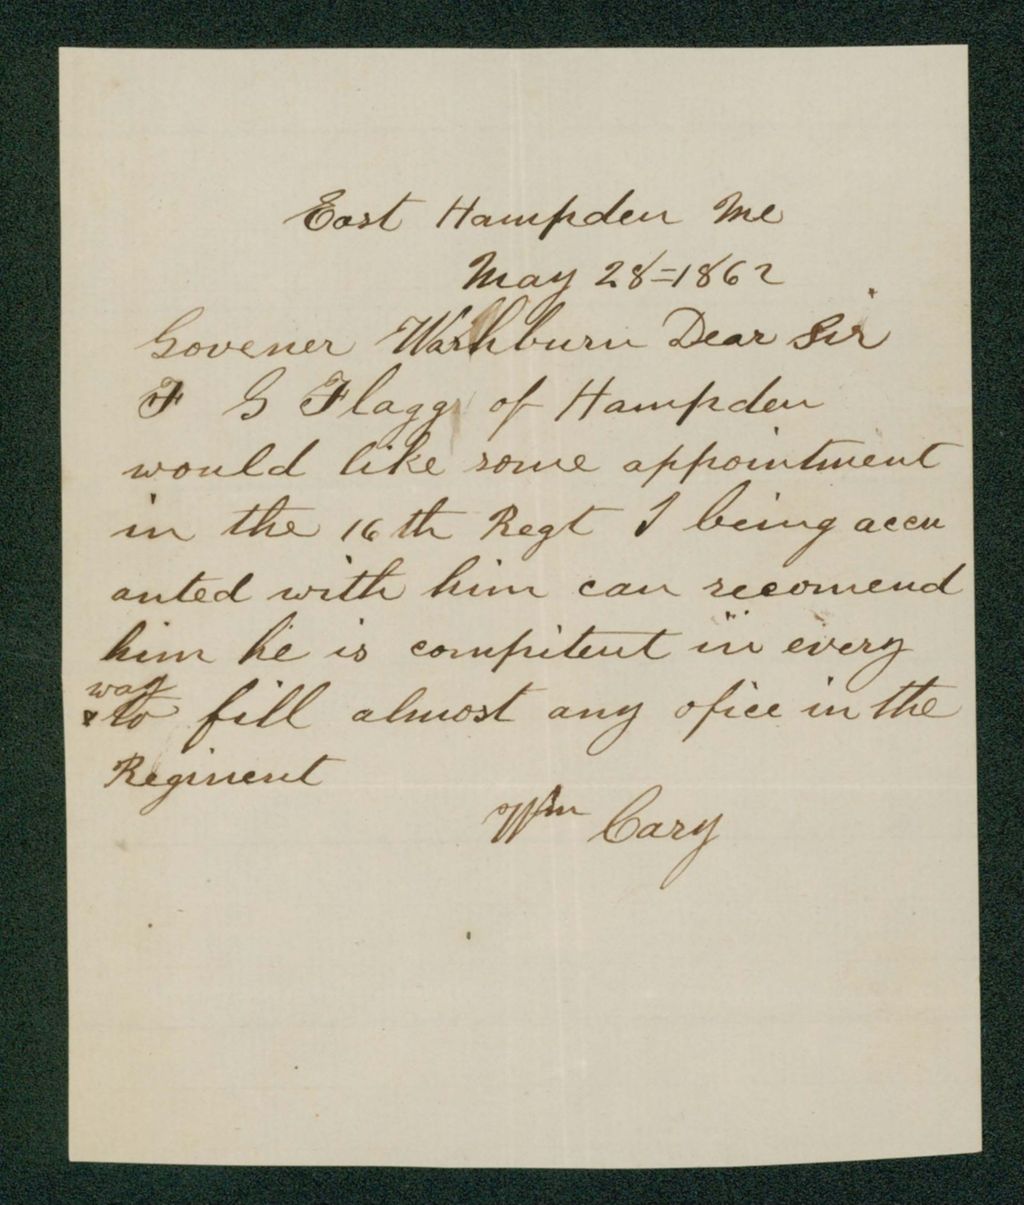 East Hampden Me
May 28=1862
Govener Washburn Dear Sir
F G Flagg of Hampden
would like some appointment
in the 16th Regt I being accu
anted with him can recomend
him he is compitent in every
way
to fill almost any ofice in the
Regiment
Wm Cary